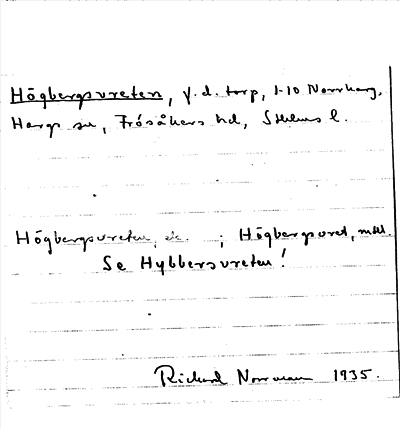 Högbergsvreten, f.d. torp, 1-10 Norrharg,
Hargs sn, Frösåkers hd, Sthlms l.
Högbergsvreten, ; Högbergsvret,
Se Hybbersvreten!
Richard Norrman 1935.